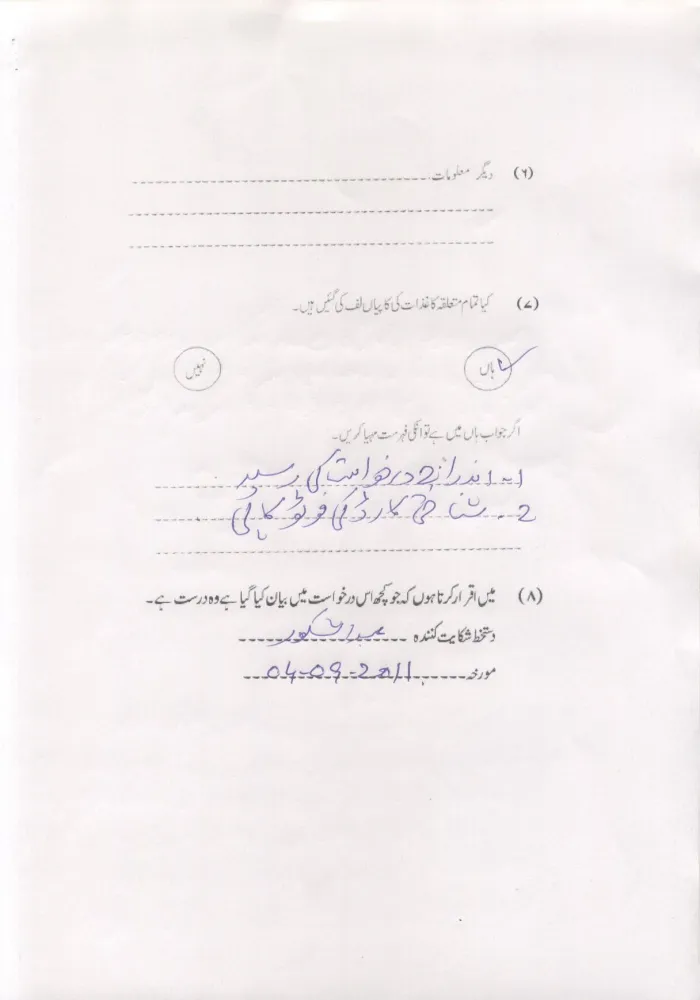 (۶) دیگر معلومات
(۷) کیا تمام متعلقہ کاغذات کی کاپیاں لف کی گئیں ہیں۔
ہاں ✓ نہیں
اگر جواب ہاں میں ہے تو انکی فہرست مہیا کریں۔
1- اندراج درخواست کی رسید
2- شناختی کارڈ کی فوٹو کاپی
(۸) میں اقرار کرتا ہوں کہ جو کچھ اس درخواست میں بیان کیا گیا ہے وہ درست ہے۔
دستخط شکایت کنندہ عبدالشکور
مورخہ 04-09-2011